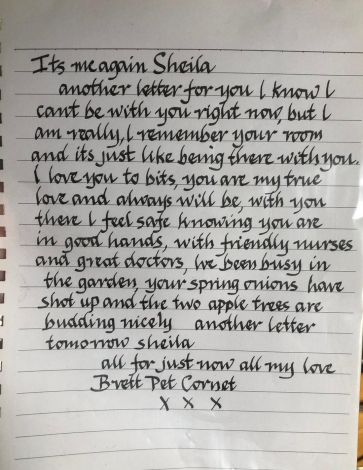 Its me again Sheila
another letter for you I know I
cant be with you right now, but I
am really, I remember your room
and its just like being there with you.
I love you to bits, you are my true
love and always will be, with you
there I feel safe knowing you are
in good hands, with friendly nurses
and great doctors, Ive been busy in
the garden, your spring onions have
shot up and the two apple trees are
budding nicely another letter
tomorrow sheila
all for just now all my love
Brett Pet Cornet
x x x